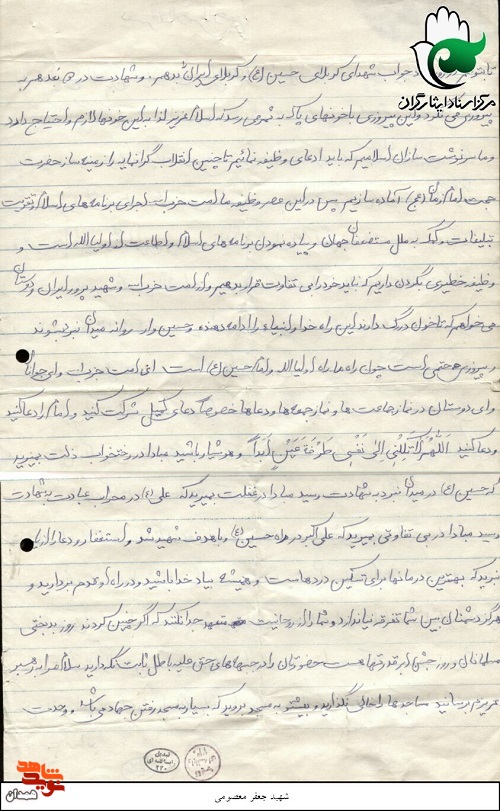 مرکز اسناد ایثارگران
تا بتوانیم جواب شهدای کربلای حسین (ع) و کربلای ایران بدهیم. و شهادت در هر بعد هم به
پیروزی می‌گردد و این پیروزی با خونهای پاک به ثمر می رسد که اسلام عزیز لذا به این خونها لازم و احتیاج دارد
و ما سرنوشت سازان اسلامیم که باید ادای وظیفه نمائیم تا چنین انقلاب گرانمایه را زمینه ساز حضرت
حجت امام زمان (عج) آماده سازیم پس در این عصر وظیفه ما امت حزب الله اجرای برنامه های اسلام و تقویت
تبلیغات و کمک به ملل مستضعفان جهان و پیاده نمودن برنامه های اسلام و اطاعت از اولیا الله است و
وظیفه خطیری بگردن داریم که نباید خود را بی تفاوت قرار بدهیم و از امت حزب الله و شهید پرور ایران و دوستان
می خواهم که تا خون در رگ دارند این راه خدا و انبیاء را ادامه دهند و حسین وار روانه میدان نبرد شوند
و پیروزی حتمی است چون راه ما راه اولیا الله و امام حسین (ع) است. ای امت حزب الله و ای جوانان
و ای دوستان در نماز جماعت ها و نماز جمعه ها و دعاها خصوصاً دعای کمیل شرکت کنید و امام را دعا کنید
و دعا کنید اللهم لا تکلنی الی نفسی طرفة عین ابداً و هوشیار باشید مبادا در رختخواب ذلت بمیرید
که حسین (ع) در میدان نبرد به شهادت رسید مبادا در غفلت بمیرید که علی (ع) در محراب عبادت به شهادت
رسید مبادا در بی تفاوتی بمیرید که علی اکبر در راه حسین (ع) و با هدف شهید شد و استغفار و دعا را از یاد
نبرید که بهترین درمانها برای تسکین دردهاست و همیشه بیاد خدا باشید و در راه او قدم بردارید و
هرگز دشمنان بین شما تفرقه نیاندازند و شما را از روحانیت متعهد جدا نکنند که اگر چنین کردند روز بدبختی
مسلمانان و روز جشن ابرقدرتهاست حضورتان را در جبهه های حق علیه باطل ثابت نگهدارید سلام مرا به رهبر
عزیزم برسانید مساجدها را خالی نگذارید و بیشتر به مسجد بروید که بسیار به مسجد رفتن جهاد می باشد و وحدت
شهید جعفر معصومی
نوید شاهد
همدان